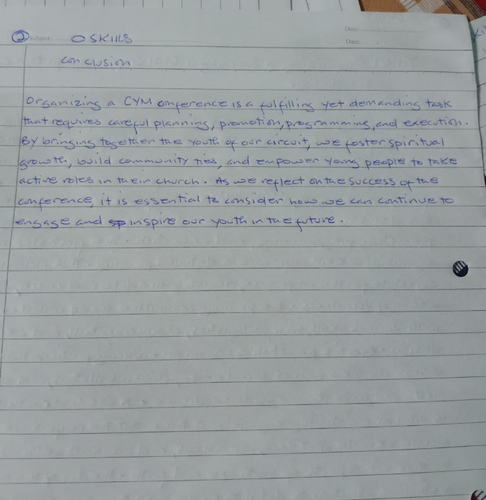 ② O SKILLS
Conclusion
Organizing a CYM conference is a fulfilling yet demanding task
that requires careful planning, promotion, programming, and execution.
By bringing together the youth of our circuit, we foster spiritual
growth, build community ties, and empower young people to take
active roles in their church. As we reflect on the success of the
conference, it is essential to consider how we can continue to
engage and inspire our youth in the future.